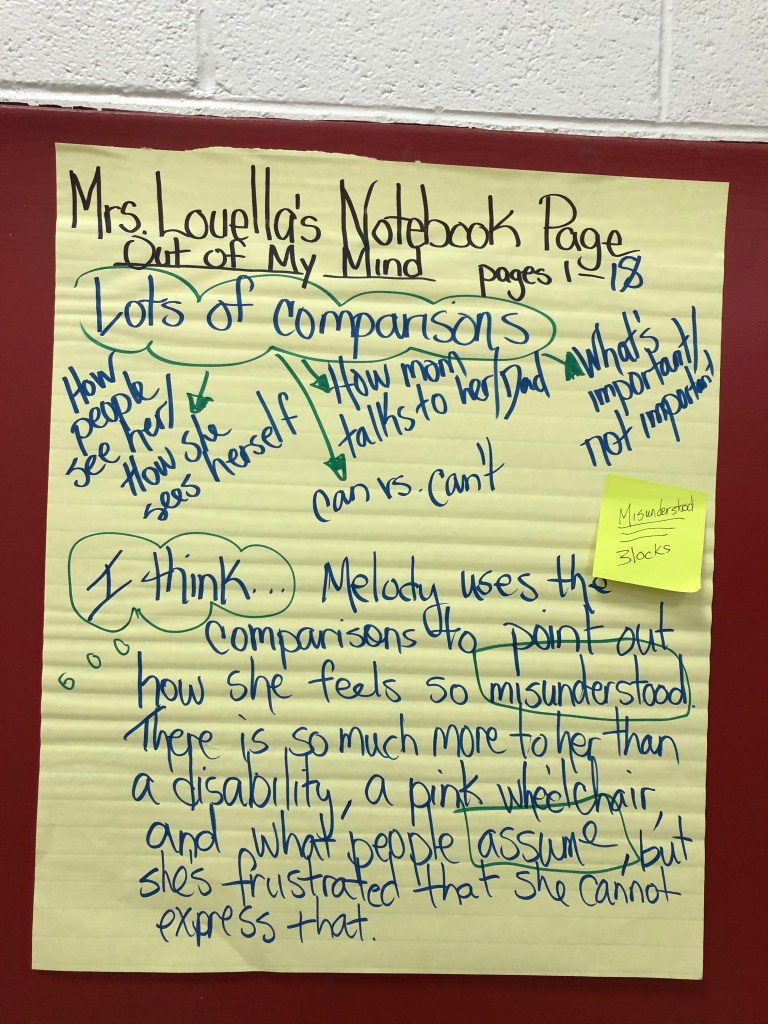 Mrs. Louella's Notebook Page
Out of My Mind pages 1-18
Lots of comparisons
How
people
see her/
How she
sees herself
How mom
talks to her/Dad
can vs. can't
What's
important/
not important
Misunderstood
Blocks
I think... Melody uses the
comparisons to point out
how she feels so misunderstood.
There is so much more to her than
a disability, a pink wheelchair,
and what people assume, but
she's frustrated that she cannot
express that.